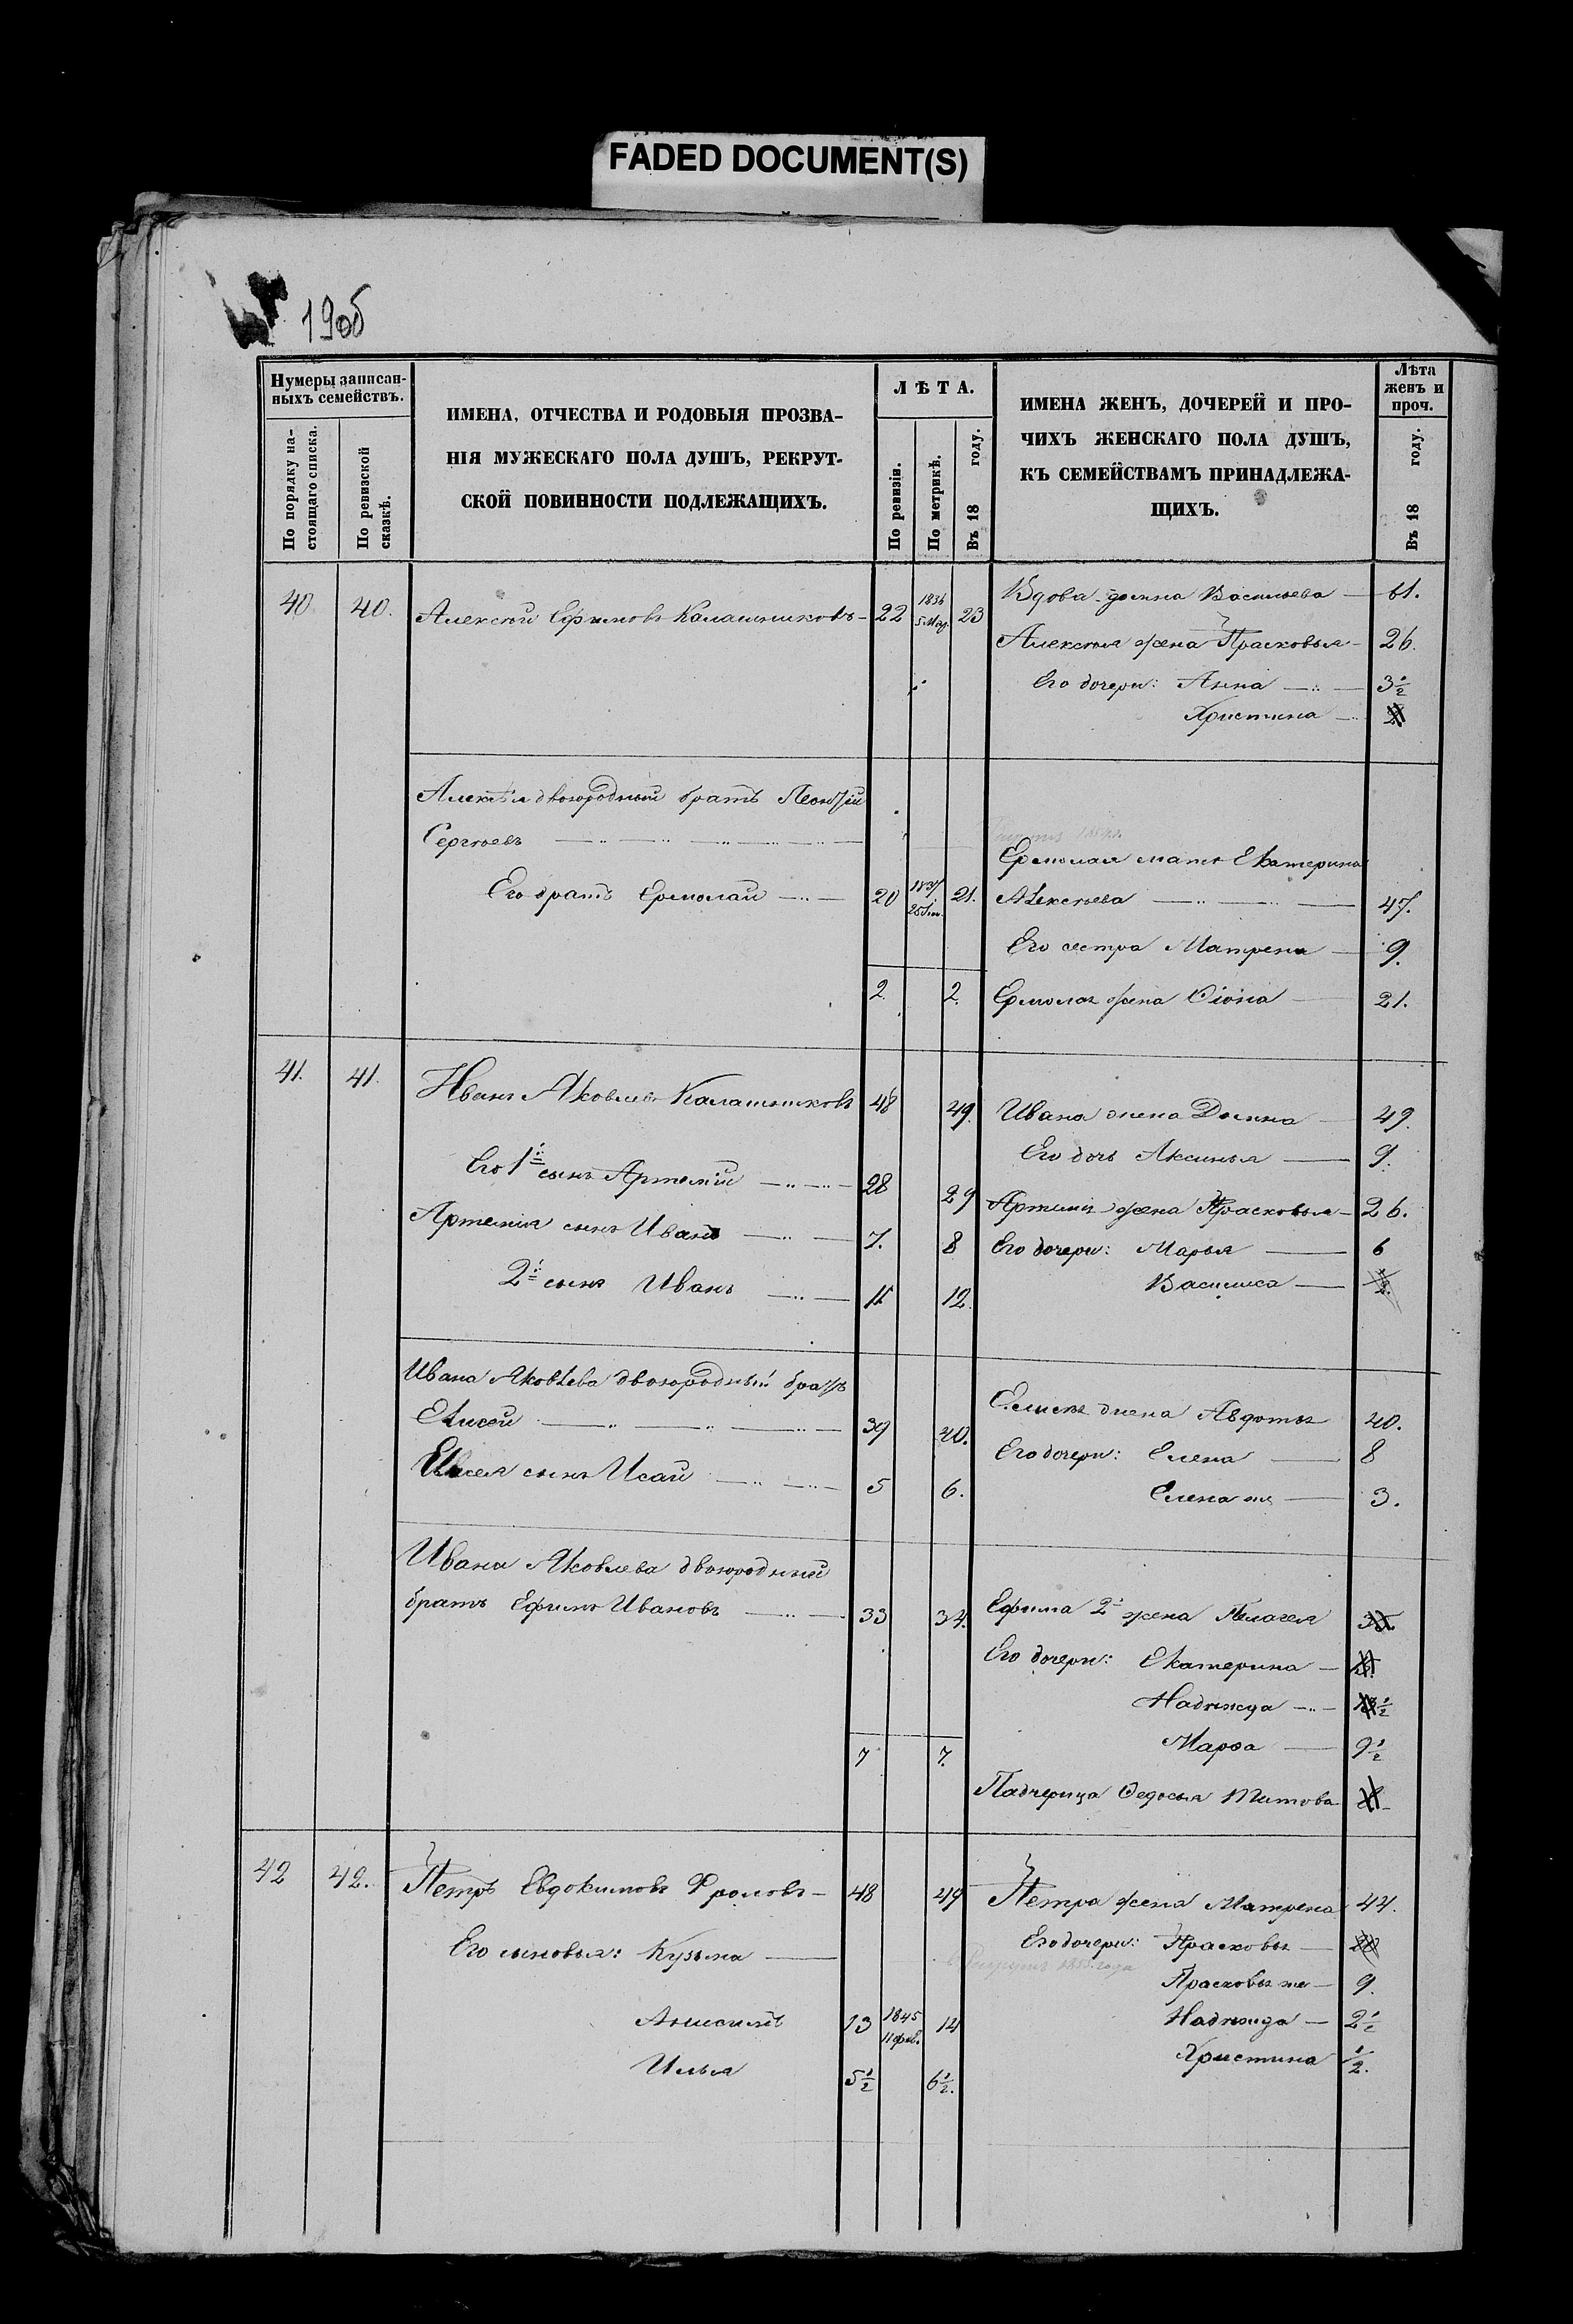 FADED DOCUMENT(S)
1906
Нумеры записан-
ныхъ семействъ.
По порядку на-
стоящаго списка.
По ревизской
сказкѣ.
ИМЕНА, ОТЧЕСТВА И РОДОВЫЯ ПРОЗВА-
НІЯ МУЖЕСКАГО ПОЛА ДУШЪ, РЕКРУТ-
СКОЙ ПОВИННОСТИ ПОДЛЕЖАЩИХЪ.
ЛѢТА.
По ревизіи.
По метрикѣ.
Въ 18 году.
ИМЕНА ЖЕНЪ, ДОЧЕРЕЙ И ПРО-
ЧИХЪ ЖЕНСКАГО ПОЛА ДУШЪ,
КЪ СЕМЕЙСТВАМЪ ПРИНАДЛЕЖА-
ЩИХЪ.
Лѣта
женъ и
проч.
Въ 18 году.
40. 40. Алексѣй Ефимовъ Калашниковъ 22 1836 5 Мар. 23
Вдова Домна Васильева 61.
Алексѣя жена Прасковья 26.
Его дочери: Анна 3 1/2
Христина
Алексѣя двоюродный братъ Леонтій
Сергѣевъ
Его братъ Ермолай 20 1837 21.
Ермолая мать Екатерина
Алексѣева 47.
Его сестра Матрена 9.
2. 2. Ермолая жена 21.
41. 41. Иванъ Яковлевъ Калашниковъ 48 49.
Ивана жена Домна 49.
Его дочь Аксинья 9.
Его 1й сынъ Артемій 28 29
Артемія жена Прасковья 26.
Артемія сынъ Иванъ 7. 8
Его дочери: Марья 6
Василиса
2й сынъ Иванъ 11 12.
Ивана Яковлева двоюродный братъ
Елисей 39 40.
Елисея жена Авдотья 40.
Его дочери: Елена 8
Елисея сынъ Исай 5 6.
Елена же 3.
Ивана Яковлева двоюродный
братъ Ефимъ Ивановъ 33 34.
Ефима 2я жена Пелагея
Его дочери: Екатерина
Надежда
Марѳа 9 1/2
7 7.
Падчерица Ѳедосья Титова
42 42. Петръ Евдокимовъ Фроловъ 48 49
Петра жена Матрена 44.
Его сыновья: Кузьма
Его дочери: Прасковья
Прасковья же 9.
Анисимъ 13 1845 11 фев. 14
Надежда 2 1/2
Илья 5 1/2 6 1/2.
Христина 1/2.